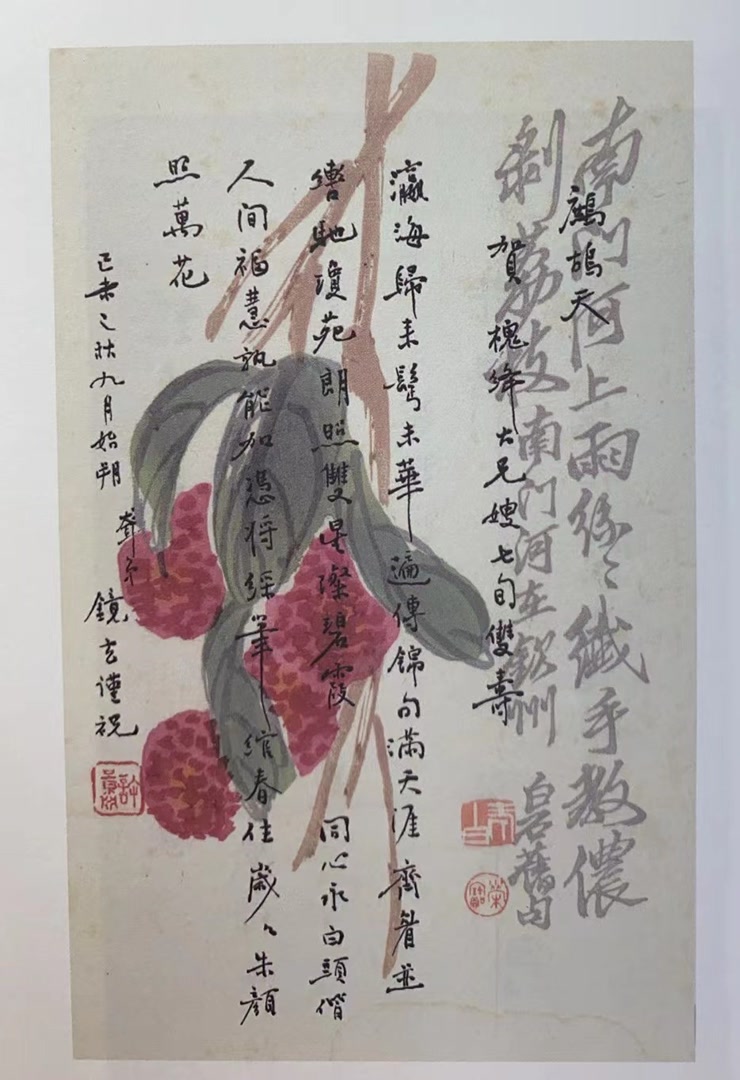 南門河上雨絲〻纖手教儂
剝荔枝南門河在欽州 白石舊句
鷓鴣天
賀槐絳大兄嫂七旬雙壽
瀛海歸來鬢未華遍傳錦句滿天涯齊眉並
轡馳瓊苑朗照雙星燦碧霞 同心永白頭偕
人間福慧孰能加憑將綵筆綰春住歲〻朱顏
照萬花
己未之秋九月始朔 弟 鏡玄謹祝
榮寶